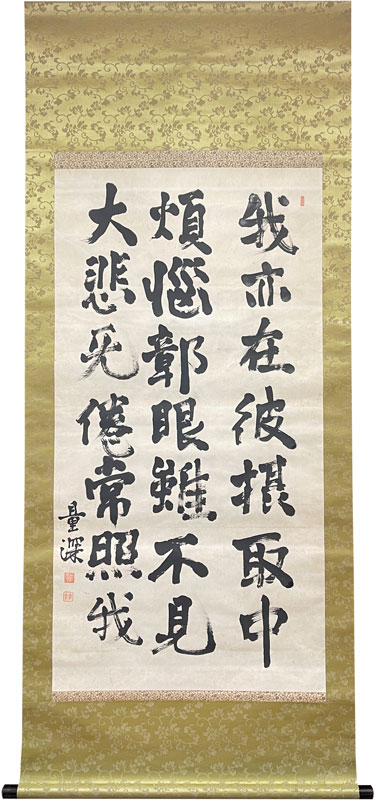 我亦在彼摂取中
煩悩鄣眼雖不見
大悲无倦常照我
量深